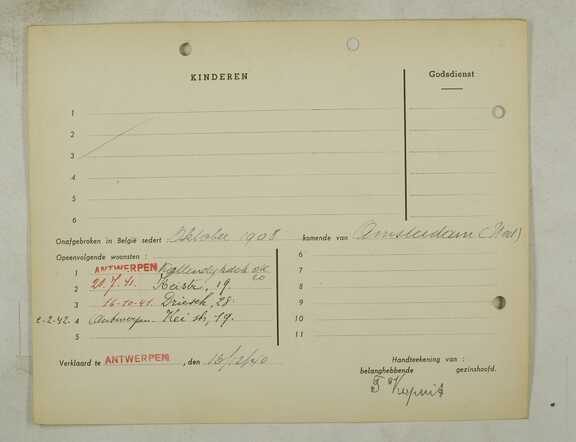 KINDEREN
Godsdienst
1
2
3
4
5
6
Onafgebroken in België sedert Oktober 1908 komende van Amsterdam (Hol)
Opeenvolgende woonsten :
1 ANTWERPEN
2 20.7.41. Keistr, 19.
3 16-10-41. Driesch, 28.
2-2-42. 4 Antwerpen. Keistr, 19.
5
6
7
8
9
10
11
Verklaard te ANTWERPEN , den 16/12/40
Handteekening van :
belanghebbende gezinshoofd.